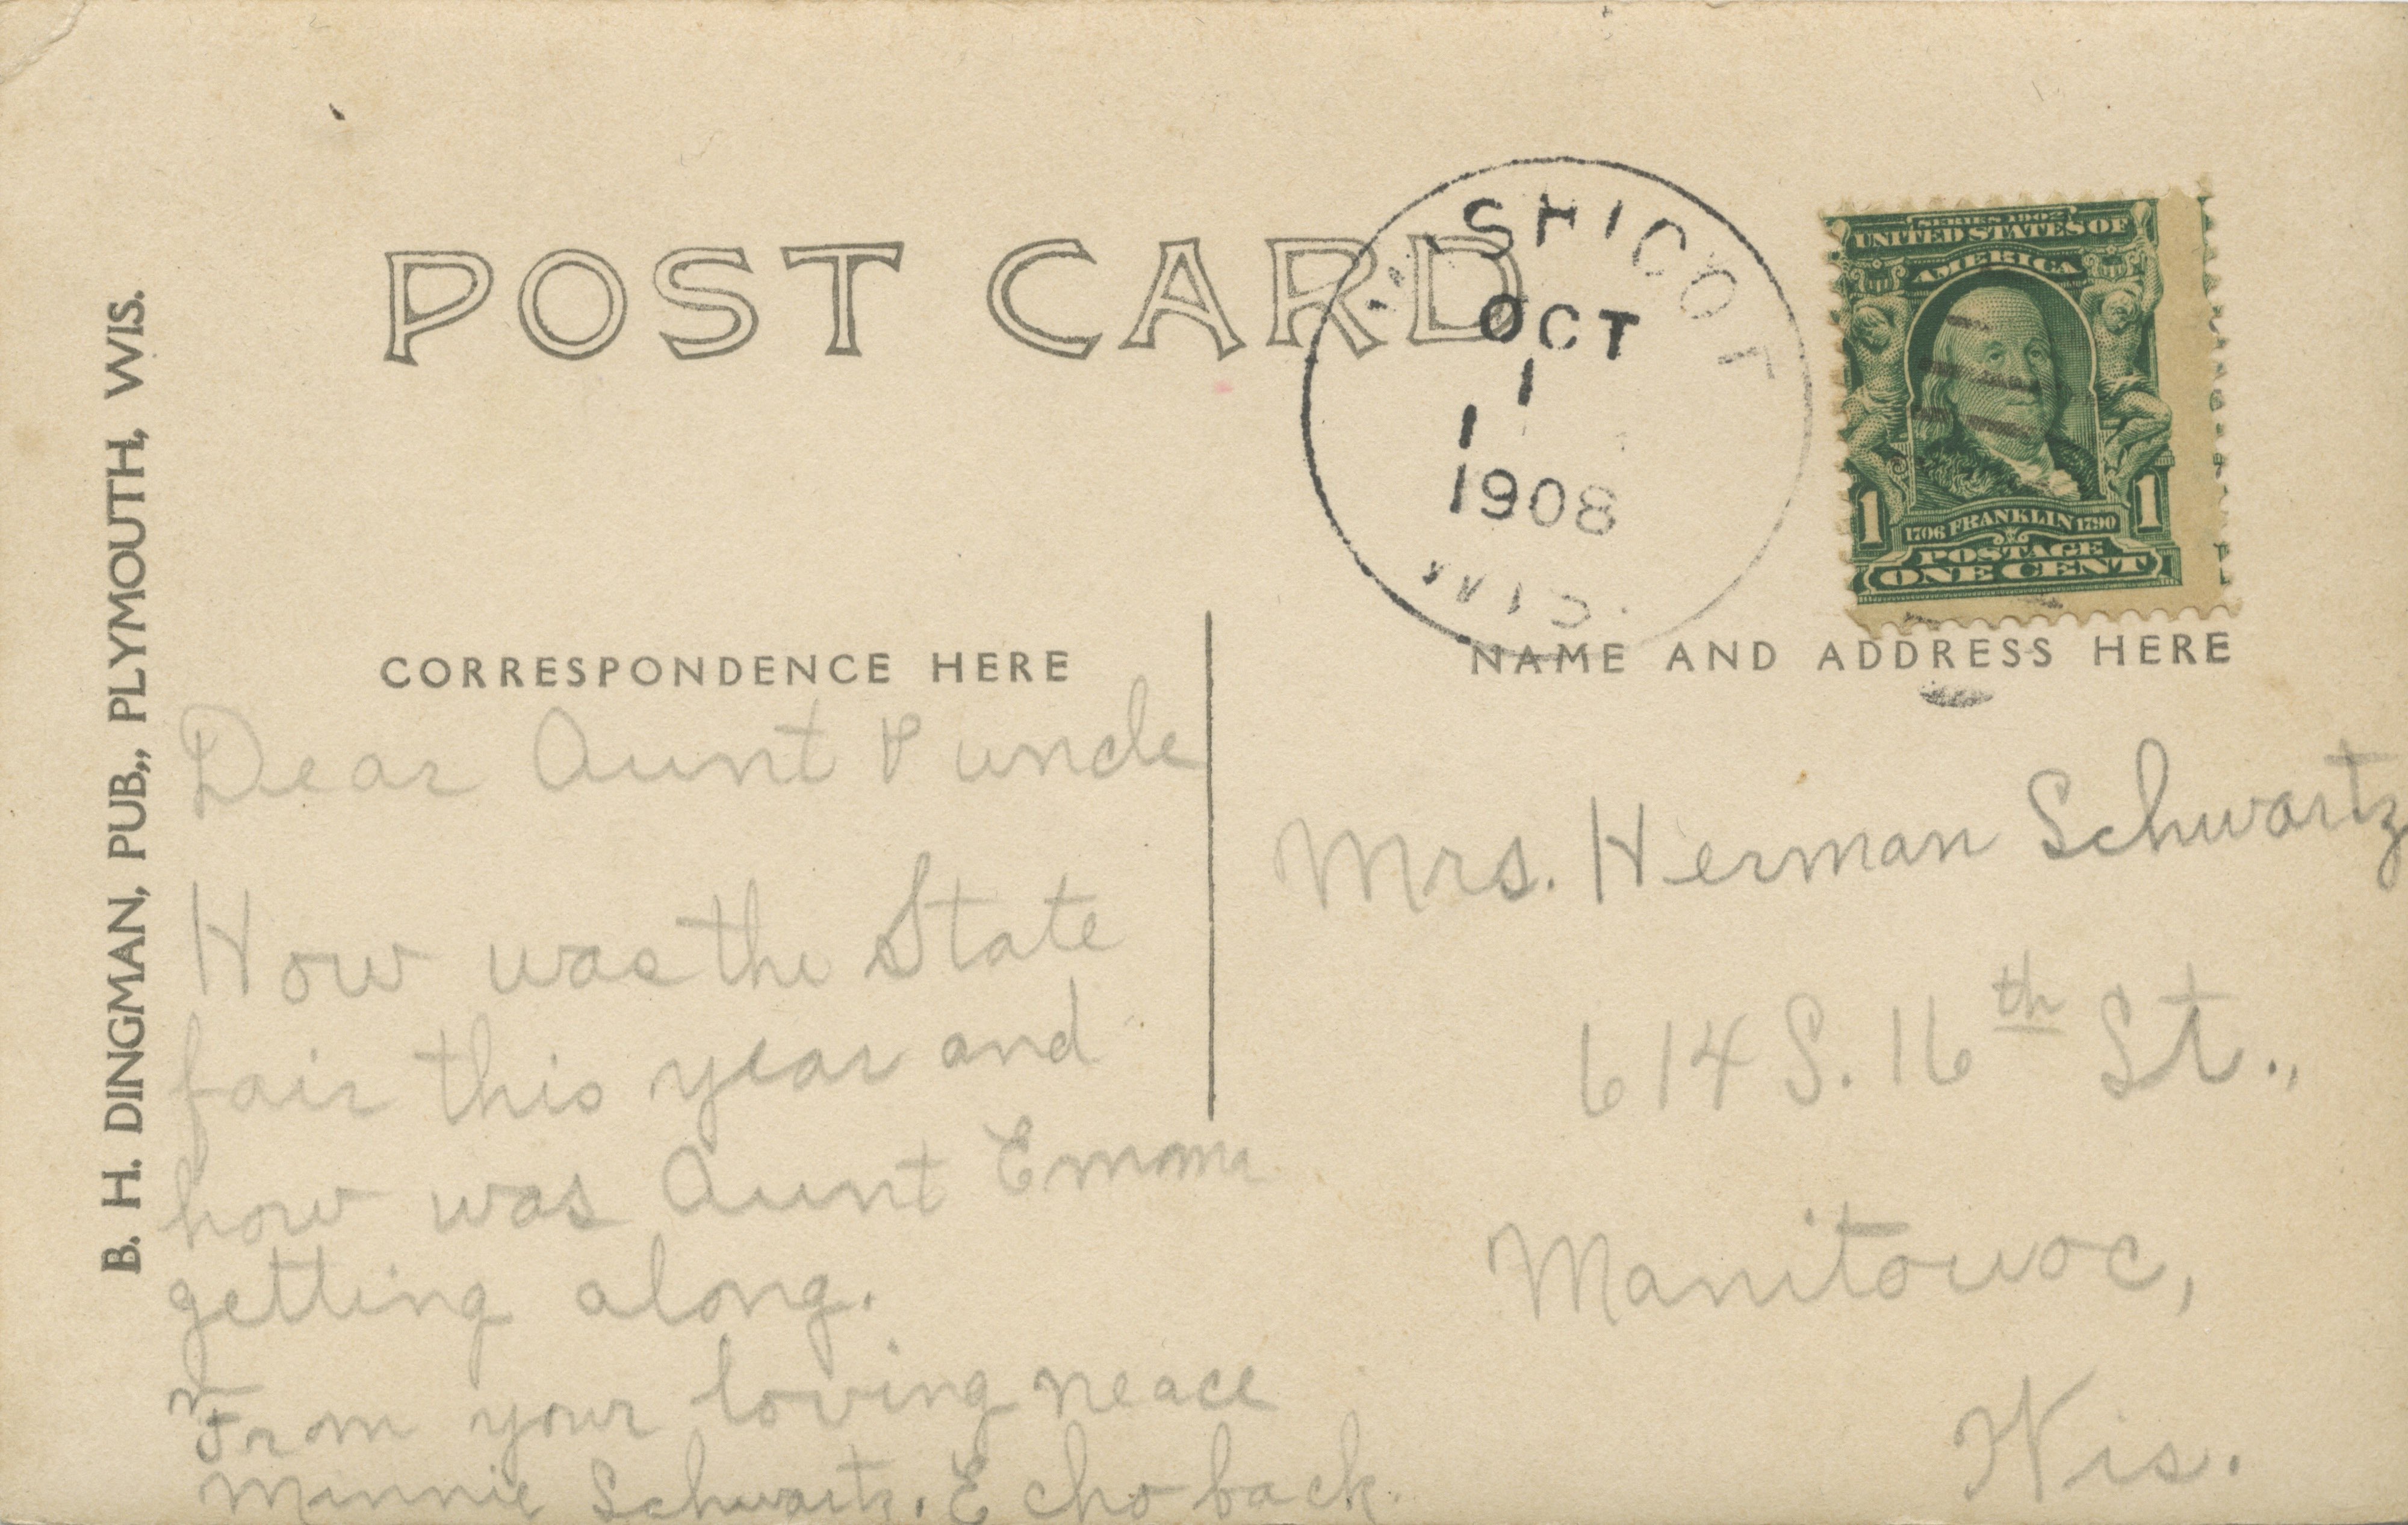 B. H. DINGMAN, PUB., PLYMOUTH, WIS.
POST CARD
MISHICOT
OCT
1
1
1908
WIS.
SERIES 1902
UNITED STATES OF
AMERICA
1 1
1706 FRANKLIN 1790
POSTAGE
ONE CENT
CORRESPONDENCE HERE
NAME AND ADDRESS HERE
Dear Aunt & uncle
How was the State
fair this year and
how was Aunt Emma
getting along.
From your loving neace
Minnie Schwartz. Echo back.
Mrs. Herman Schwartz
614 S. 16th St.,
Manitowoc,
Wis.